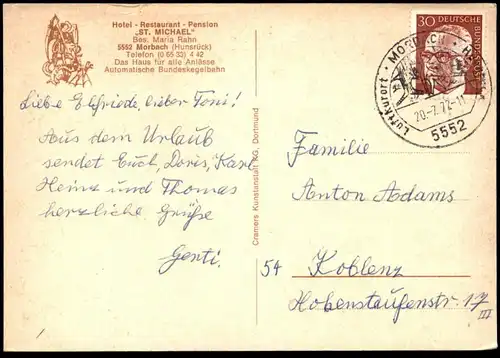 Hotel - Restaurant - Pension
„ST. MICHAEL"
Bes. Maria Rahn
5552 Morbach (Hunsrück)
Telefon (0 65 33) 4 42
Das Haus für alle Anlässe
Automatische Bundeskegelbahn
30 DEUTSCHE BUNDESPOST
Luftkurort · MORBACH
20.-7.72-11
5552
Liebe Elfriede, lieber Toni!
Aus dem Urlaub
sendet Euch, Doris, Karl
Heinz und Thomas
herzliche Grüße
Genti.
Cramers Kunstanstalt KG, Dortmund
Familie
Anton Adams
54 Koblenz
Hohenstaufenstr. 17
III